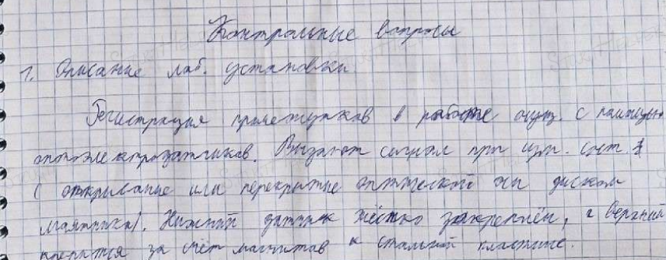 Контрольные вопросы
1. Описание лаб. установки.
Регистрация промежутков в работе осущ. с помощью
оптоэлектродатчиков. Выдают сигнал при изм. сост.
( открывание или перекрытие оптической оси диском
маятника). Нижний датчик жёстко закреплён, а верхний
крепится за счёт магнитов к стальной пластине.